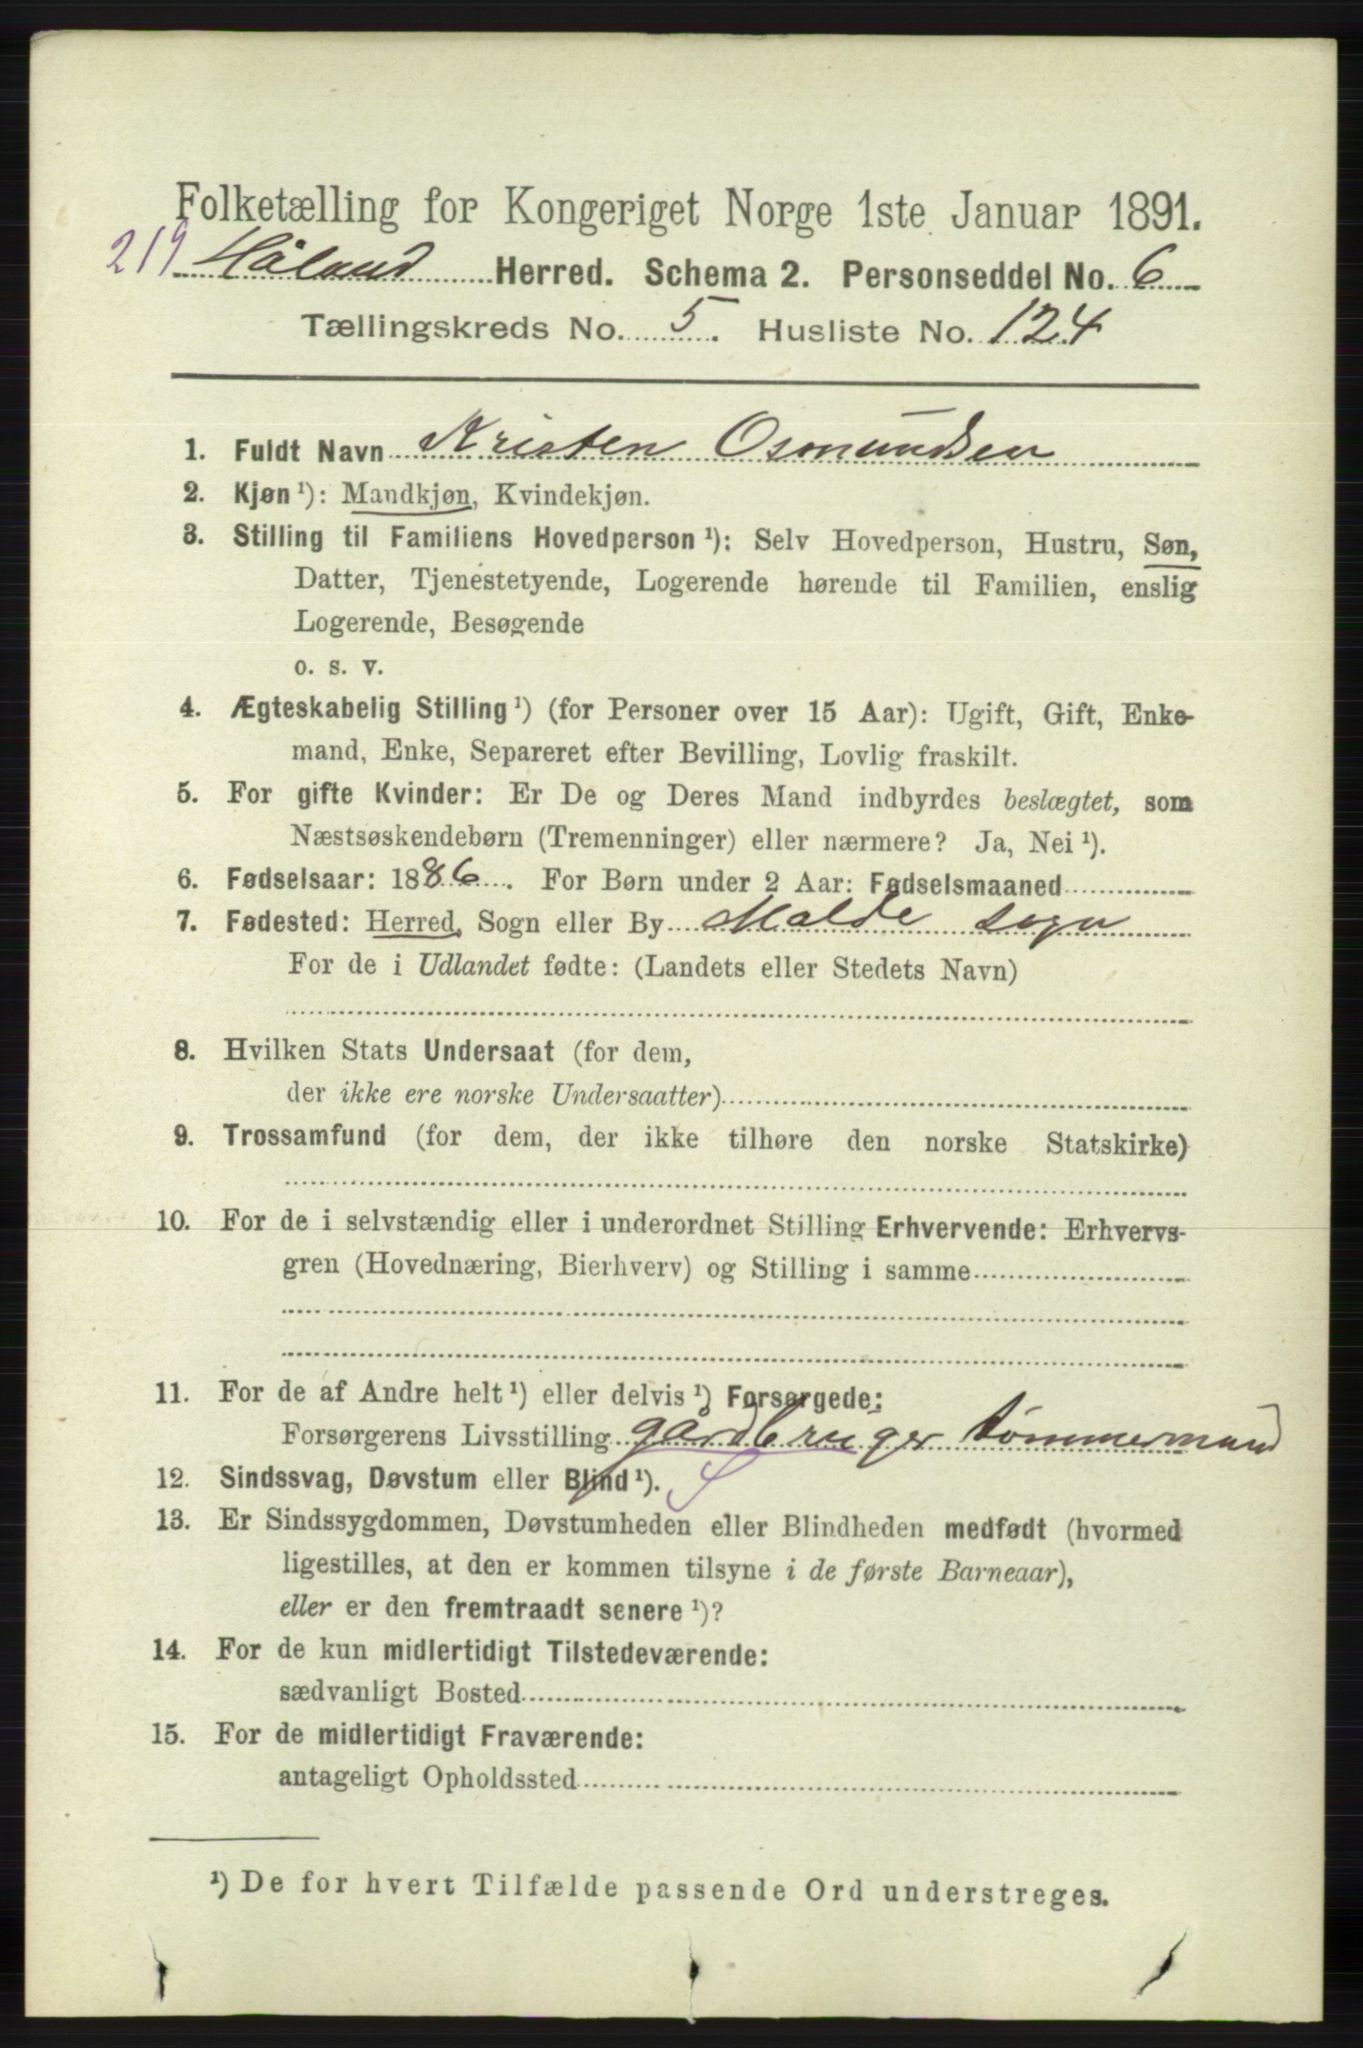 Folketælling for Kongeriget Norge 1ste Januar 1891.
219 Håland Herred. Schema 2. Personseddel No. 6
Tællingskreds No. 5. Husliste No. 124
1. Fuldt Navn Kristen Osmundsen
2. Kjøn ¹): Mandkjøn, Kvindekjøn.
3. Stilling til Familiens Hovedperson ¹): Selv Hovedperson, Hustru, Søn,
Datter, Tjenestetyende, Logerende hørende til Familien, enslig
Logerende, Besøgende
o. s. v.
4. Ægteskabelig Stilling ¹) (for Personer over 15 Aar): Ugift, Gift, Enke-
mand, Enke, Separeret efter Bevilling, Lovlig fraskilt.
5. For gifte Kvinder: Er De og Deres Mand indbyrdes beslægtet, som
Næstsøskendebørn (Tremenninger) eller nærmere? Ja, Nei ¹).
6. Fødselsaar: 1886. For Børn under 2 Aar: Fødselsmaaned
7. Fødested: Herred, Sogn eller By Malde sogn
For de i Udlandet fødte: (Landets eller Stedets Navn)
8. Hvilken Stats Undersaat (for dem,
der ikke ere norske Undersaatter)
9. Trossamfund (for dem, der ikke tilhøre den norske Statskirke)
10. For de i selvstændig eller i underordnet Stilling Erhvervende: Erhvervs-
gren (Hovednæring, Bierhverv) og Stilling i samme
11. For de af Andre helt ¹) eller delvis ¹) Forsørgede:
Forsørgerens Livsstilling gårdbruger tømmermand
12. Sindssvag, Døvstum eller Blind ¹). S
13. Er Sindssygdommen, Døvstumheden eller Blindheden medfødt (hvormed
ligestilles, at den er kommen tilsyne i de første Barneaar),
eller er den fremtraadt senere ¹)?
14. For de kun midlertidigt Tilstedeværende:
sædvanligt Bosted
15. For de midlertidigt Fraværende:
antageligt Opholdssted
¹) De for hvert Tilfælde passende Ord understreges.